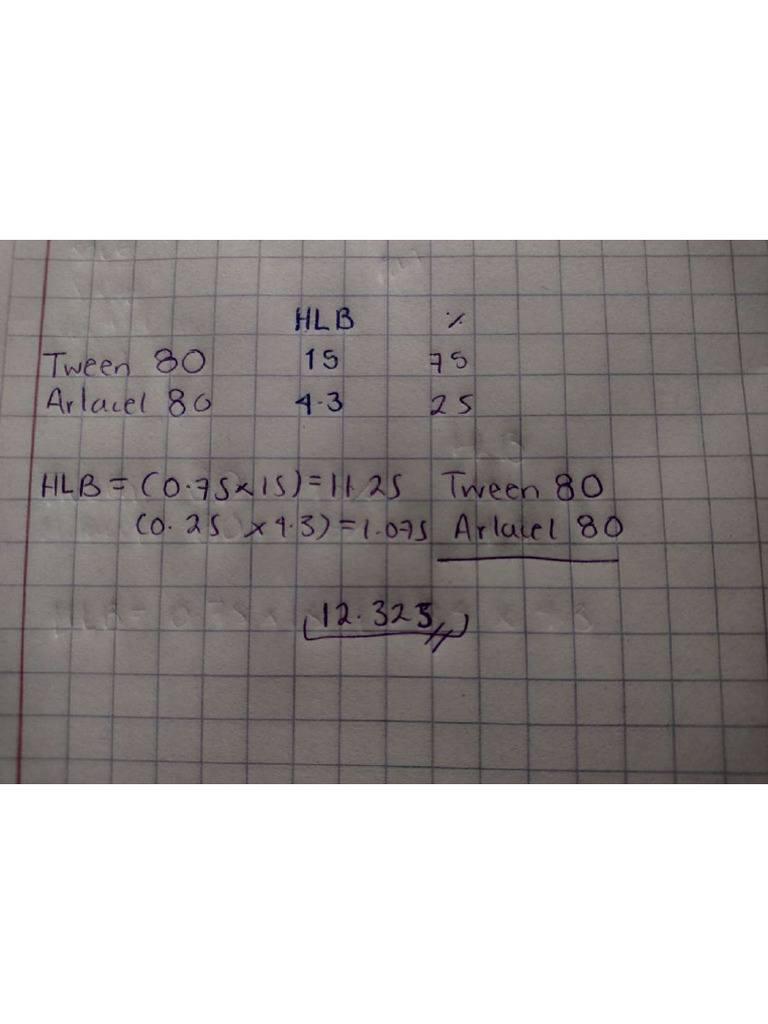 HLB %
Tween 80 15 75
Arlacel 80 4.3 25
HLB = (0.75x15) = 11.25 Tween 80
(0.25 x4.3) = 1.075 Arlacel 80
12.325